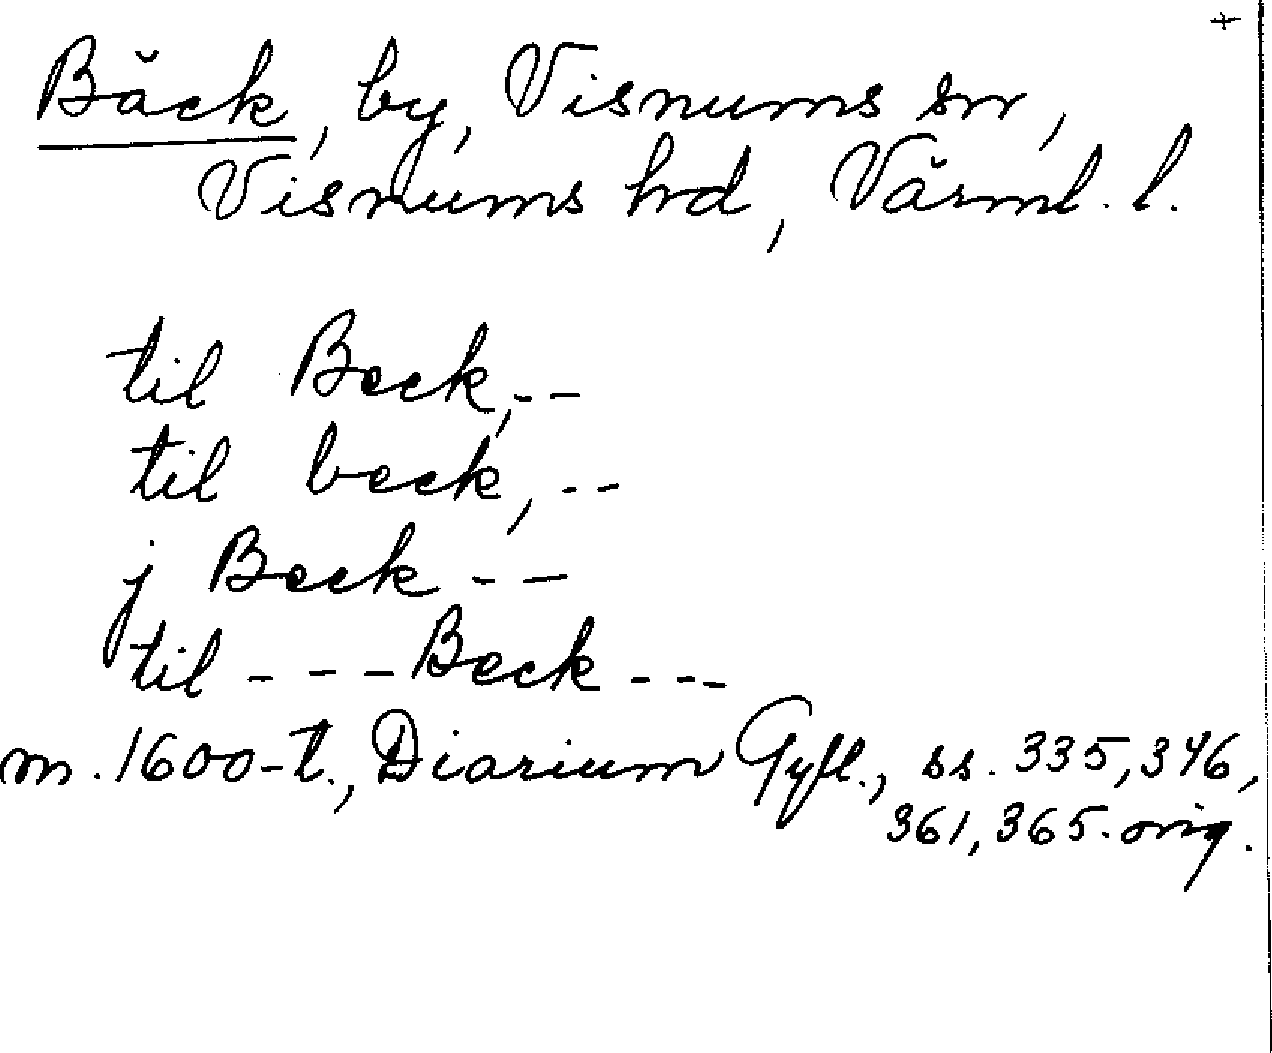 +
Bäck, by, Visnums sn,
Visnums hd, Värml. l.
til Beck, --
til beck, --
j Beck --
til --- Beck ---
m. 1600-t., Diarium Gyll., ss. 335, 346,
361, 365. orig.